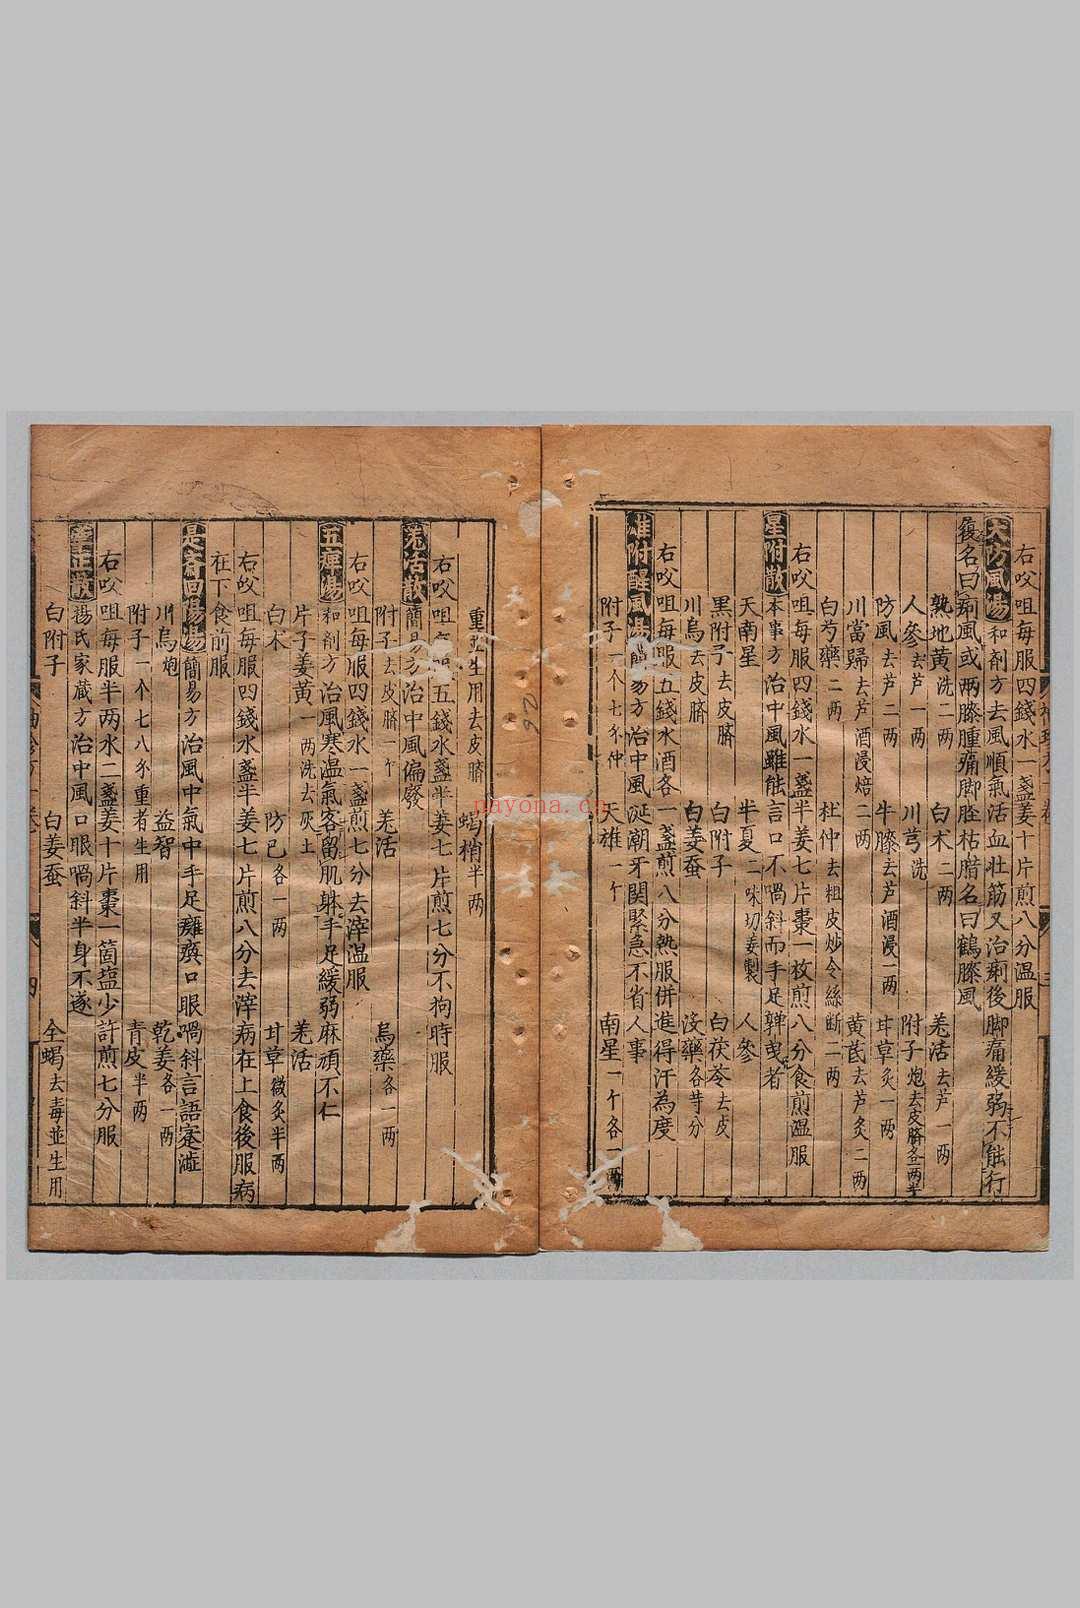 右㕮咀每服四錢水一盞姜十片煎八分温服
大防風湯和剤方去風順氣活血壯筋又治痢後脚痛緩弱不能行
復名曰痢風或两膝腫痛脚胫枯腊名曰鶴膝風
熟地黄洗二两 白术二两 羗活去芦一两
人參去芦一两 川芎洗 附子炮去皮臍各一两半
防風去芦二两 牛膝去芦酒浸一两 甘草炙一两
川當歸去芦酒浸焙二两 黄芪去芦炙二两
白芍藥二两 杜仲去粗皮炒令絲断二两
右㕮咀每服四錢水一盞半姜七片棗一枚煎八分食前温服
星附散本事方治中風雖能言口不喎斜而手足亸曳者
天南星 半夏二味切姜製 人參
黑附子去皮臍 白附子 白茯苓去皮
川烏去皮臍 白姜蚕 没藥各等分
右㕮咀每服五錢水酒各一盞煎八分熱服併進得汗為度
雄附醒風湯簡易方治中風涎潮牙関緊急不省人事
附子一个七分仲 天雄一个 南星一个各一两
重並生用去皮臍 蝎梢半两
右㕮咀服五錢水盞半姜七片煎七分不狗時服
羗活散簡易方治中風偏廢
附子去皮臍一个 羗活 烏藥各一两
右㕮咀每服四錢水一盞煎七分去滓温服
五痺湯和剤方治風寒温氣客留肌躰手足緩弱麻頑不仁
片子姜黄一两洗去灰土 羗活
白术 防巳各一两 甘草微炙半两
右㕮咀每服四錢水盞半姜七片煎八分去滓病在上食後服病
在下食前服
是斋回陽湯簡易方治風中氣中手足癱瘓口眼喎斜言語蹇澁
川烏炮 益智 乾姜各一两
附子一个七八分重者生用 青皮半两
右㕮咀每服半两水二盞姜十片棗一箇塩少許煎七分服
牽正散楊氏家藏方治中風口眼喎斜半身不遂
白附子 白姜蚕 全蝎去毒並生用
nayona.cn